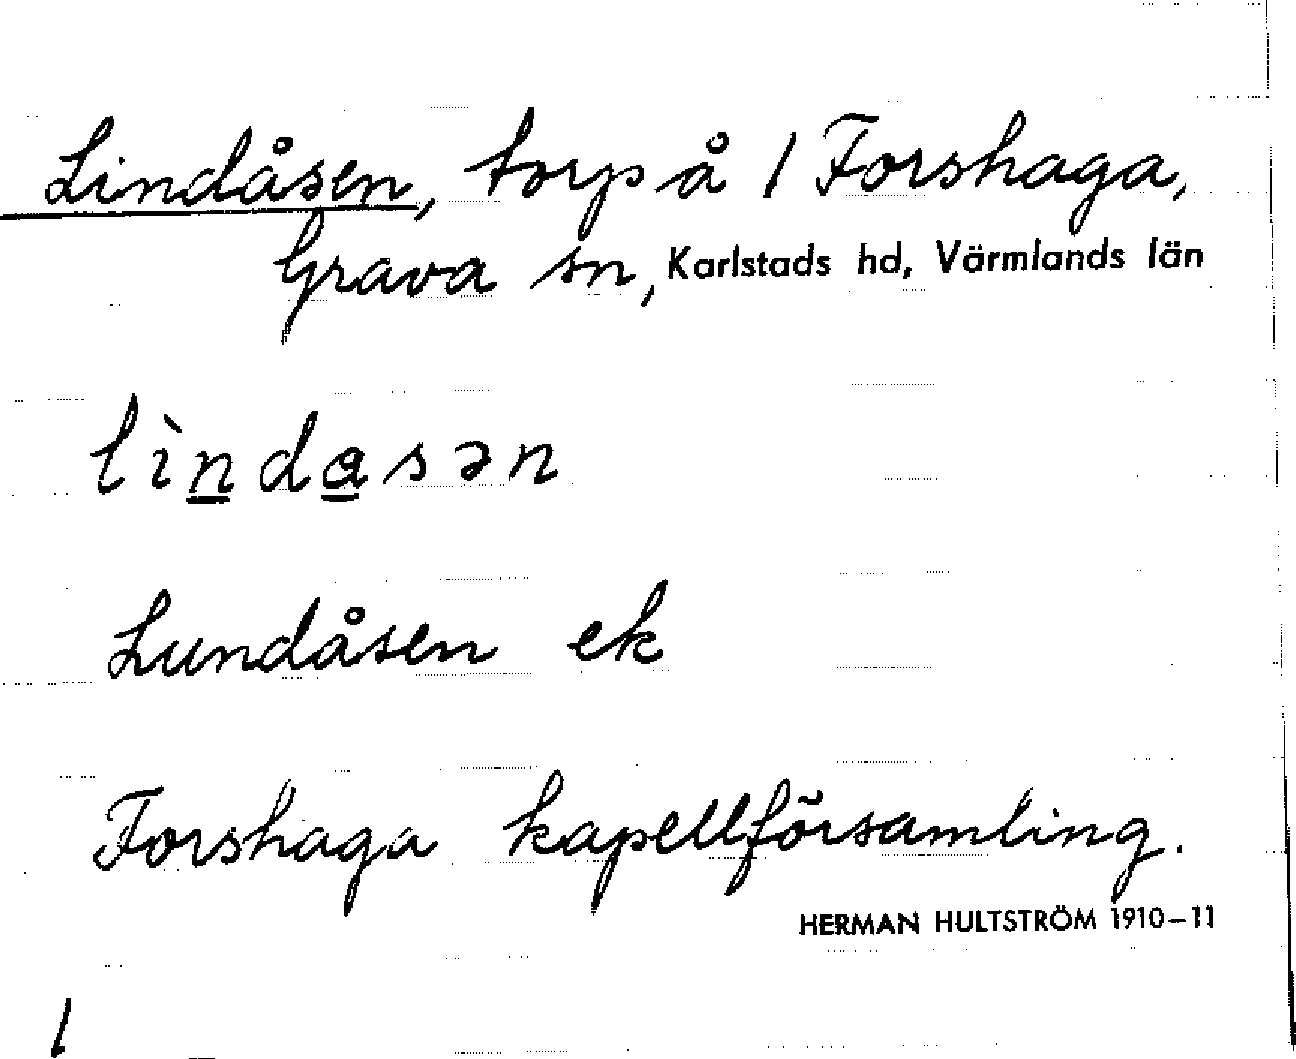 Lindåsen, torp å 1 Forshaga,
Grava sn, Karlstads hd, Värmlands län
lìndasən
Lundåsen ek
Forshaga kapellförsamling.
HERMAN HULTSTRÖM 1910–11
1